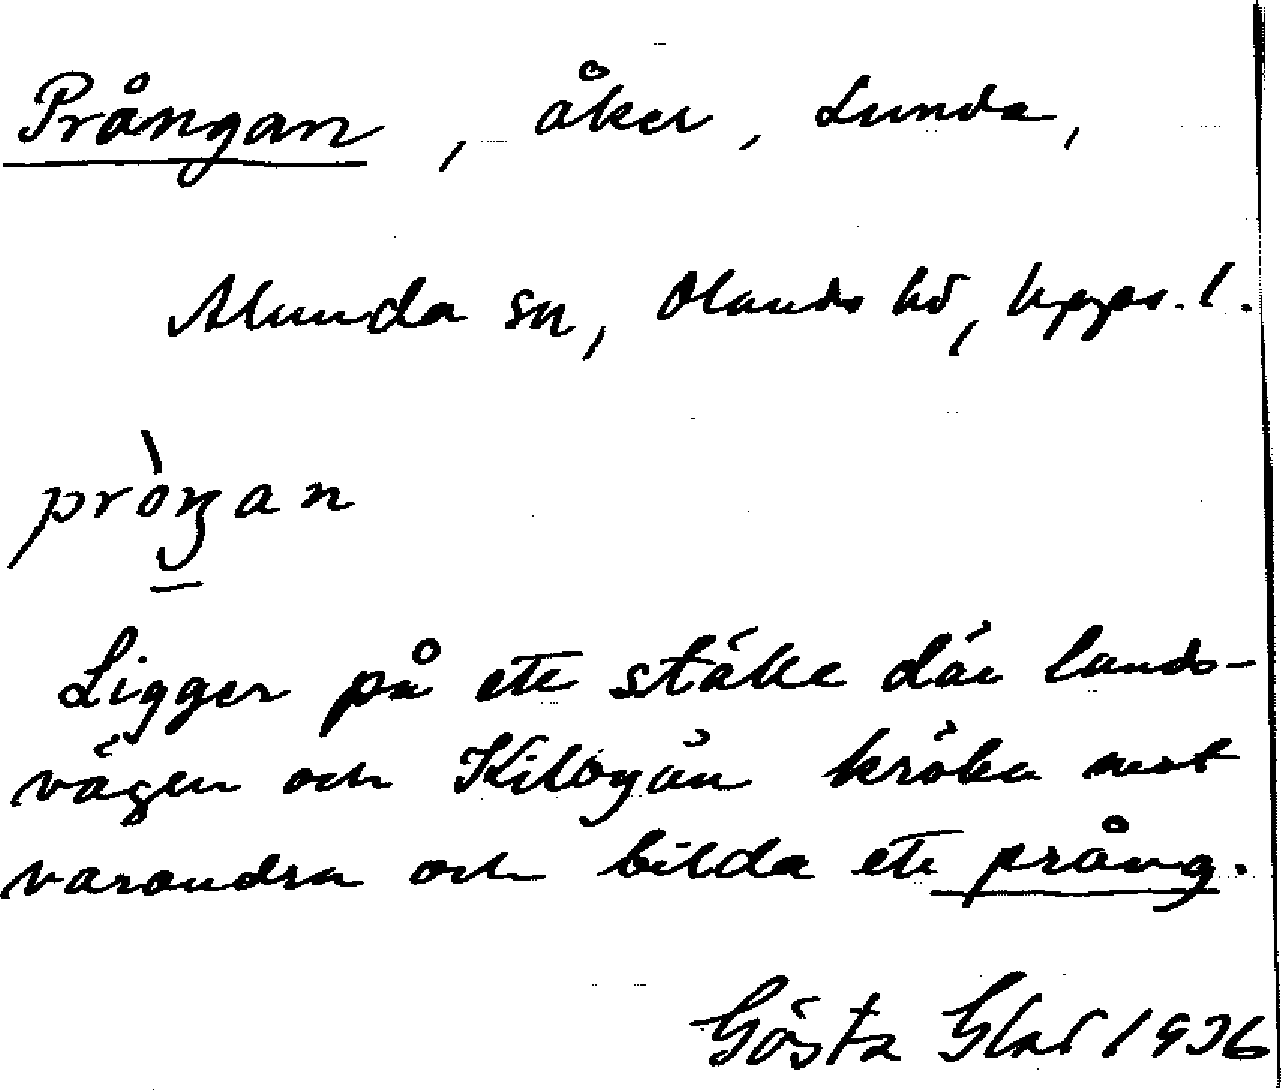 Prångan, åker, Lunda,
Alunda sn, Olands hd, Upps. l.
pròŋan
Ligger på ett ställe där lands-
vägen och Kilbyån kröka mot
varandra och bilda ett prång.
Gösta 1936